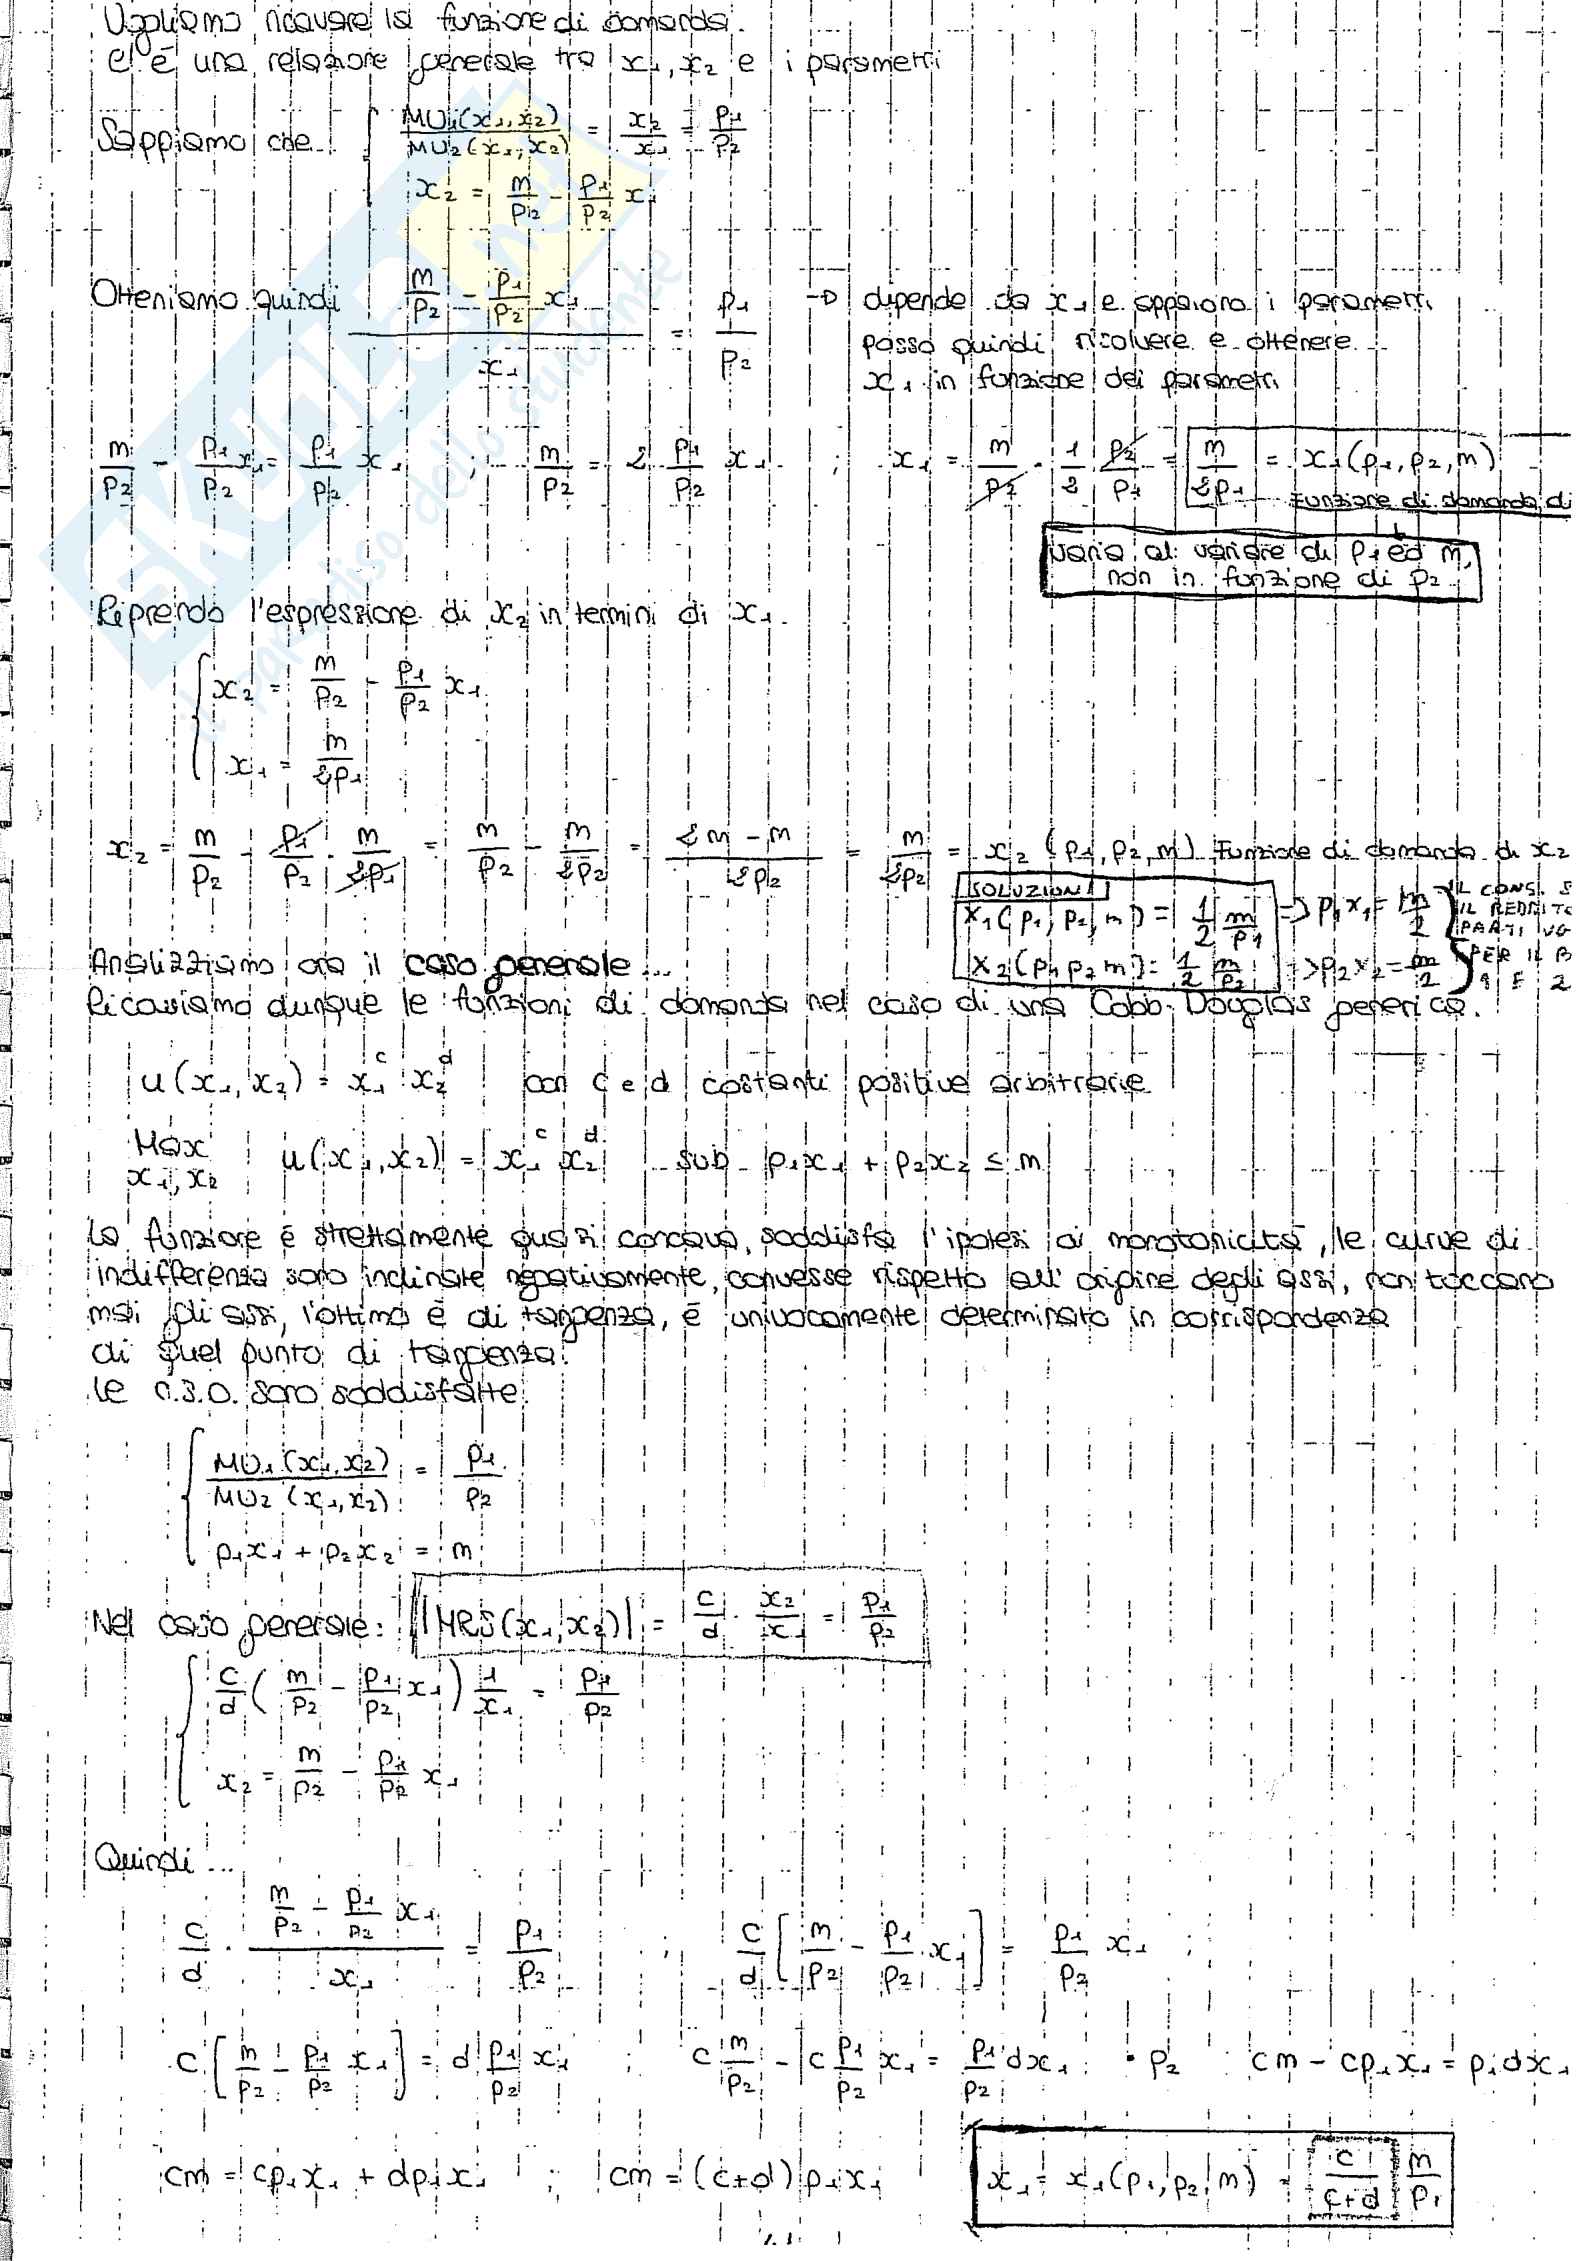 Vogliamo ricavare la funzione di domanda.
C'è una relazione generale tra x₁, x₂ e i parametri
Sappiamo che { MU₁(x₁,x₂)/MU₂(x₁,x₂) = x₂/x₁ = p₁/p₂
x₂ = m/p₂ - p₁/p₂ x₁
Otteniamo quindi (m/p₂ - p₁/p₂ x₁)/x₁ = p₁/p₂ → dipende da x₁ e appaiono i parametri
posso quindi risolvere e ottenere
x₁ in funzione dei parametri
m/p₂ - p₁/p₂ x₁ = p₁/p₂ x₁ ; m/p₂ = 2 p₁/p₂ x₁ ; x₁ = m/p₂ · 1/2 p₂/p₁ = m/2p₁ = x₁(p₁,p₂,m)
Funzione di domanda di
varia al variare di p₁ ed m,
non in funzione di p₂
Riprendo l'espressione di x₂ in termini di x₁.
{ x₂ = m/p₂ - p₁/p₂ x₁
x₁ = m/2p₁
x₂ = m/p₂ - p₁/p₂ · m/2p₁ = m/p₂ - m/2p₂ = (2m - m)/2p₂ = m/2p₂ = x₂ (p₁,p₂,m) Funzione di domanda di x₂
SOLUZIONI
x₁(p₁,p₂,m) = 1/2 m/p₁ => p₁x₁ = m/2 } IL CONS. S
IL REDDITO
PARTI UG
x₂(p₁ p₂ m) = 1/2 m/p₂ => p₂x₂ = m/2 } PER IL B
1 E 2
Analizziamo ora il caso generale...
Ricaviamo dunque le funzioni di domanda nel caso di una Cobb-Douglas generica.
u(x₁,x₂) = x₁ᶜ x₂ᵈ con c e d costanti positive arbitrarie
Max x₁,x₂ u(x₁,x₂) = x₁ᶜ x₂ᵈ sub p₁x₁ + p₂x₂ ≤ m
La funzione è strettamente quasi concava, soddisfa l'ipotesi di monotonicità, le curve di
indifferenza sono inclinate negativamente, convesse rispetto all'origine degli assi, non toccano
mai gli assi, l'ottimo è di tangenza, è univocamente determinato in corrispondenza
di quel punto di tangenza.
Le c.s.o. sono soddisfatte.
{ MU₁(x₁,x₂)/MU₂(x₁,x₂) = p₁/p₂
p₁x₁ + p₂x₂ = m
Nel caso generale: |MRS(x₁,x₂)| = c/d · x₂/x₁ = p₁/p₂
{ c/d (m/p₂ - p₁/p₂ x₁) 1/x₁ = p₁/p₂
x₂ = m/p₂ - p₁/p₂ x₁
Quindi...
c/d · (m/p₂ - p₁/p₂ x₁)/x₁ = p₁/p₂ ; c/d [m/p₂ - p₁/p₂ x₁] = p₁/p₂ x₁ ;
c [m/p₂ - p₁/p₂ x₁] = d p₁/p₂ x₁ ; c m/p₂ - c p₁/p₂ x₁ = p₁/p₂ dx₁ · p₂ cm - cp₁x₁ = p₁dx₁
cm = cp₁x₁ + dp₁x₁ ; cm = (c+d) p₁x₁ x₁ = x₁(p₁,p₂,m) = c/(c+d) m/p₁
SKUOLA.net
il paradiso dello studente